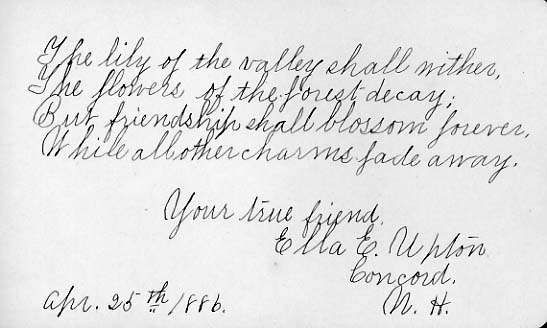 The lily of the valley shall wither,
The flowers of the forest decay;
But friendship shall blossom forever,
While all other charms fade away.
Your true friend.
Ella E. Upton
Concord.
Apr. 25th 1886. N. H.